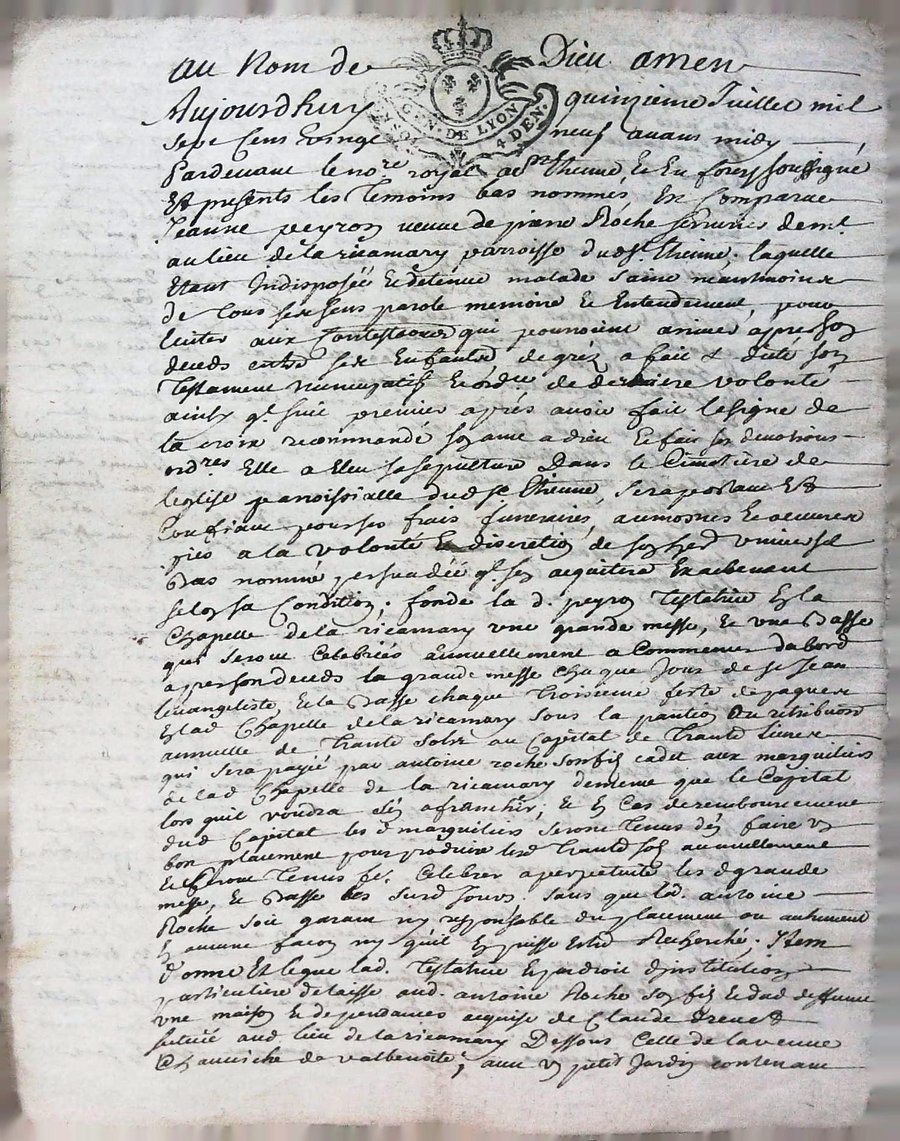 au Nom de Dieu amen
Aujourdhuy quinzieme Juillet mil
GN. DE LYON 4 DEN.
sept Cens vingt neuf avant midy
Pardevant le nore royal de st Etienne, & En forest soussigné
Et presents les Temoins bas nommés, En Comparue
Jeanne peyron veuve de pierre Roche serrurier demt
au lieu de la ricamary parroisse dud st. Etienne. laquelle
Etant Indisposée & detenue malade saine neantmoins
de tous ses sens parole memoire & Entendement, pour
Eviter aux Contestaons qui pourroient arriver apres son
deceds entre ses Enfants de gré a fait & dicté son
Testament nuncupatif & ordre de derniere volonté
ainsy q. suit premier aprés avoir fait le signe de
la croix recommandé son ame a dieu & fait ses devotions
ordres Elle a Eleu sa sepulture Dans le Cimetière de
leglise parroissialle dud st Etienne, se raportant Et
Confiant pour ses frais funeraires, aumosnes & oeuvres
pies a la volonté & discretion de son her universel
Bas nommé persuadée q. sen aquittera Exactement
selon sa Condition; fonde la d. peyron Testatrice En la
Chapelle de la ricamary une grande messe, & une Basse
qui seront Celebrées annuellement a Commencer dabord
apres son deceds la grande messe chaque Jour de st Jean
levangeliste, & la Basse chaque troisieme feste de paques
En lad Chapelle de la ricamary sous la pention ou retribuon
annuelle de trante sols au Capital de trante livres
qui sera payé par antoine roche son fils cadet aux marguiliers
de lad Chapelle de la ricamary de meme que le Capital
lors quil voudra sen afranchir, & En Cas de remboursement
dud Capital les d marguiliers seront tenus den faire un
bon placement pour produire lesd trante sols annuellement
& seront tenus fe. Celebrer a perpetuité les d grande
messe, & Basse les susd Jours. sans que led antoine
Roche soit garant ny responsable du placement ou autrement
En aucune facon ny quil En puisse Estre Recherché; Item
donne Et legue lad. Testatrice & par droit dinstitution
particuliere delaisse aud. antoine Roche son fils & dud deffunt
une maison & dependances acquise de Claude
scituée aud lieu de la ricamary Dessous Celle de la veuve
de valbenoite; avec un petit Jardin contenant